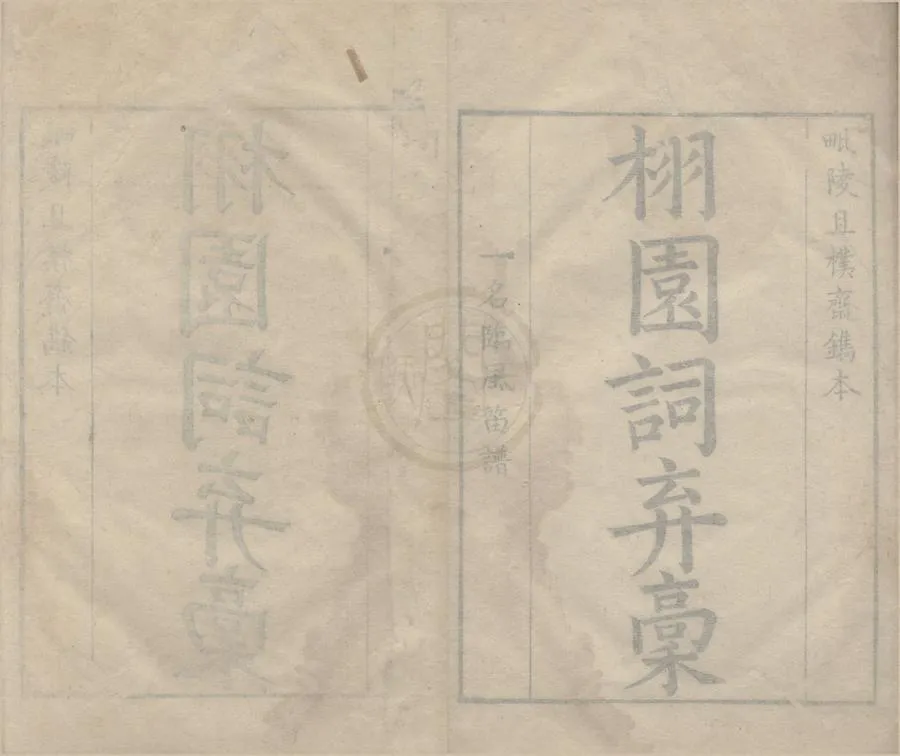 毗陵且樸齋鐫本
栩園詞弃稾
一名臨風笛譜